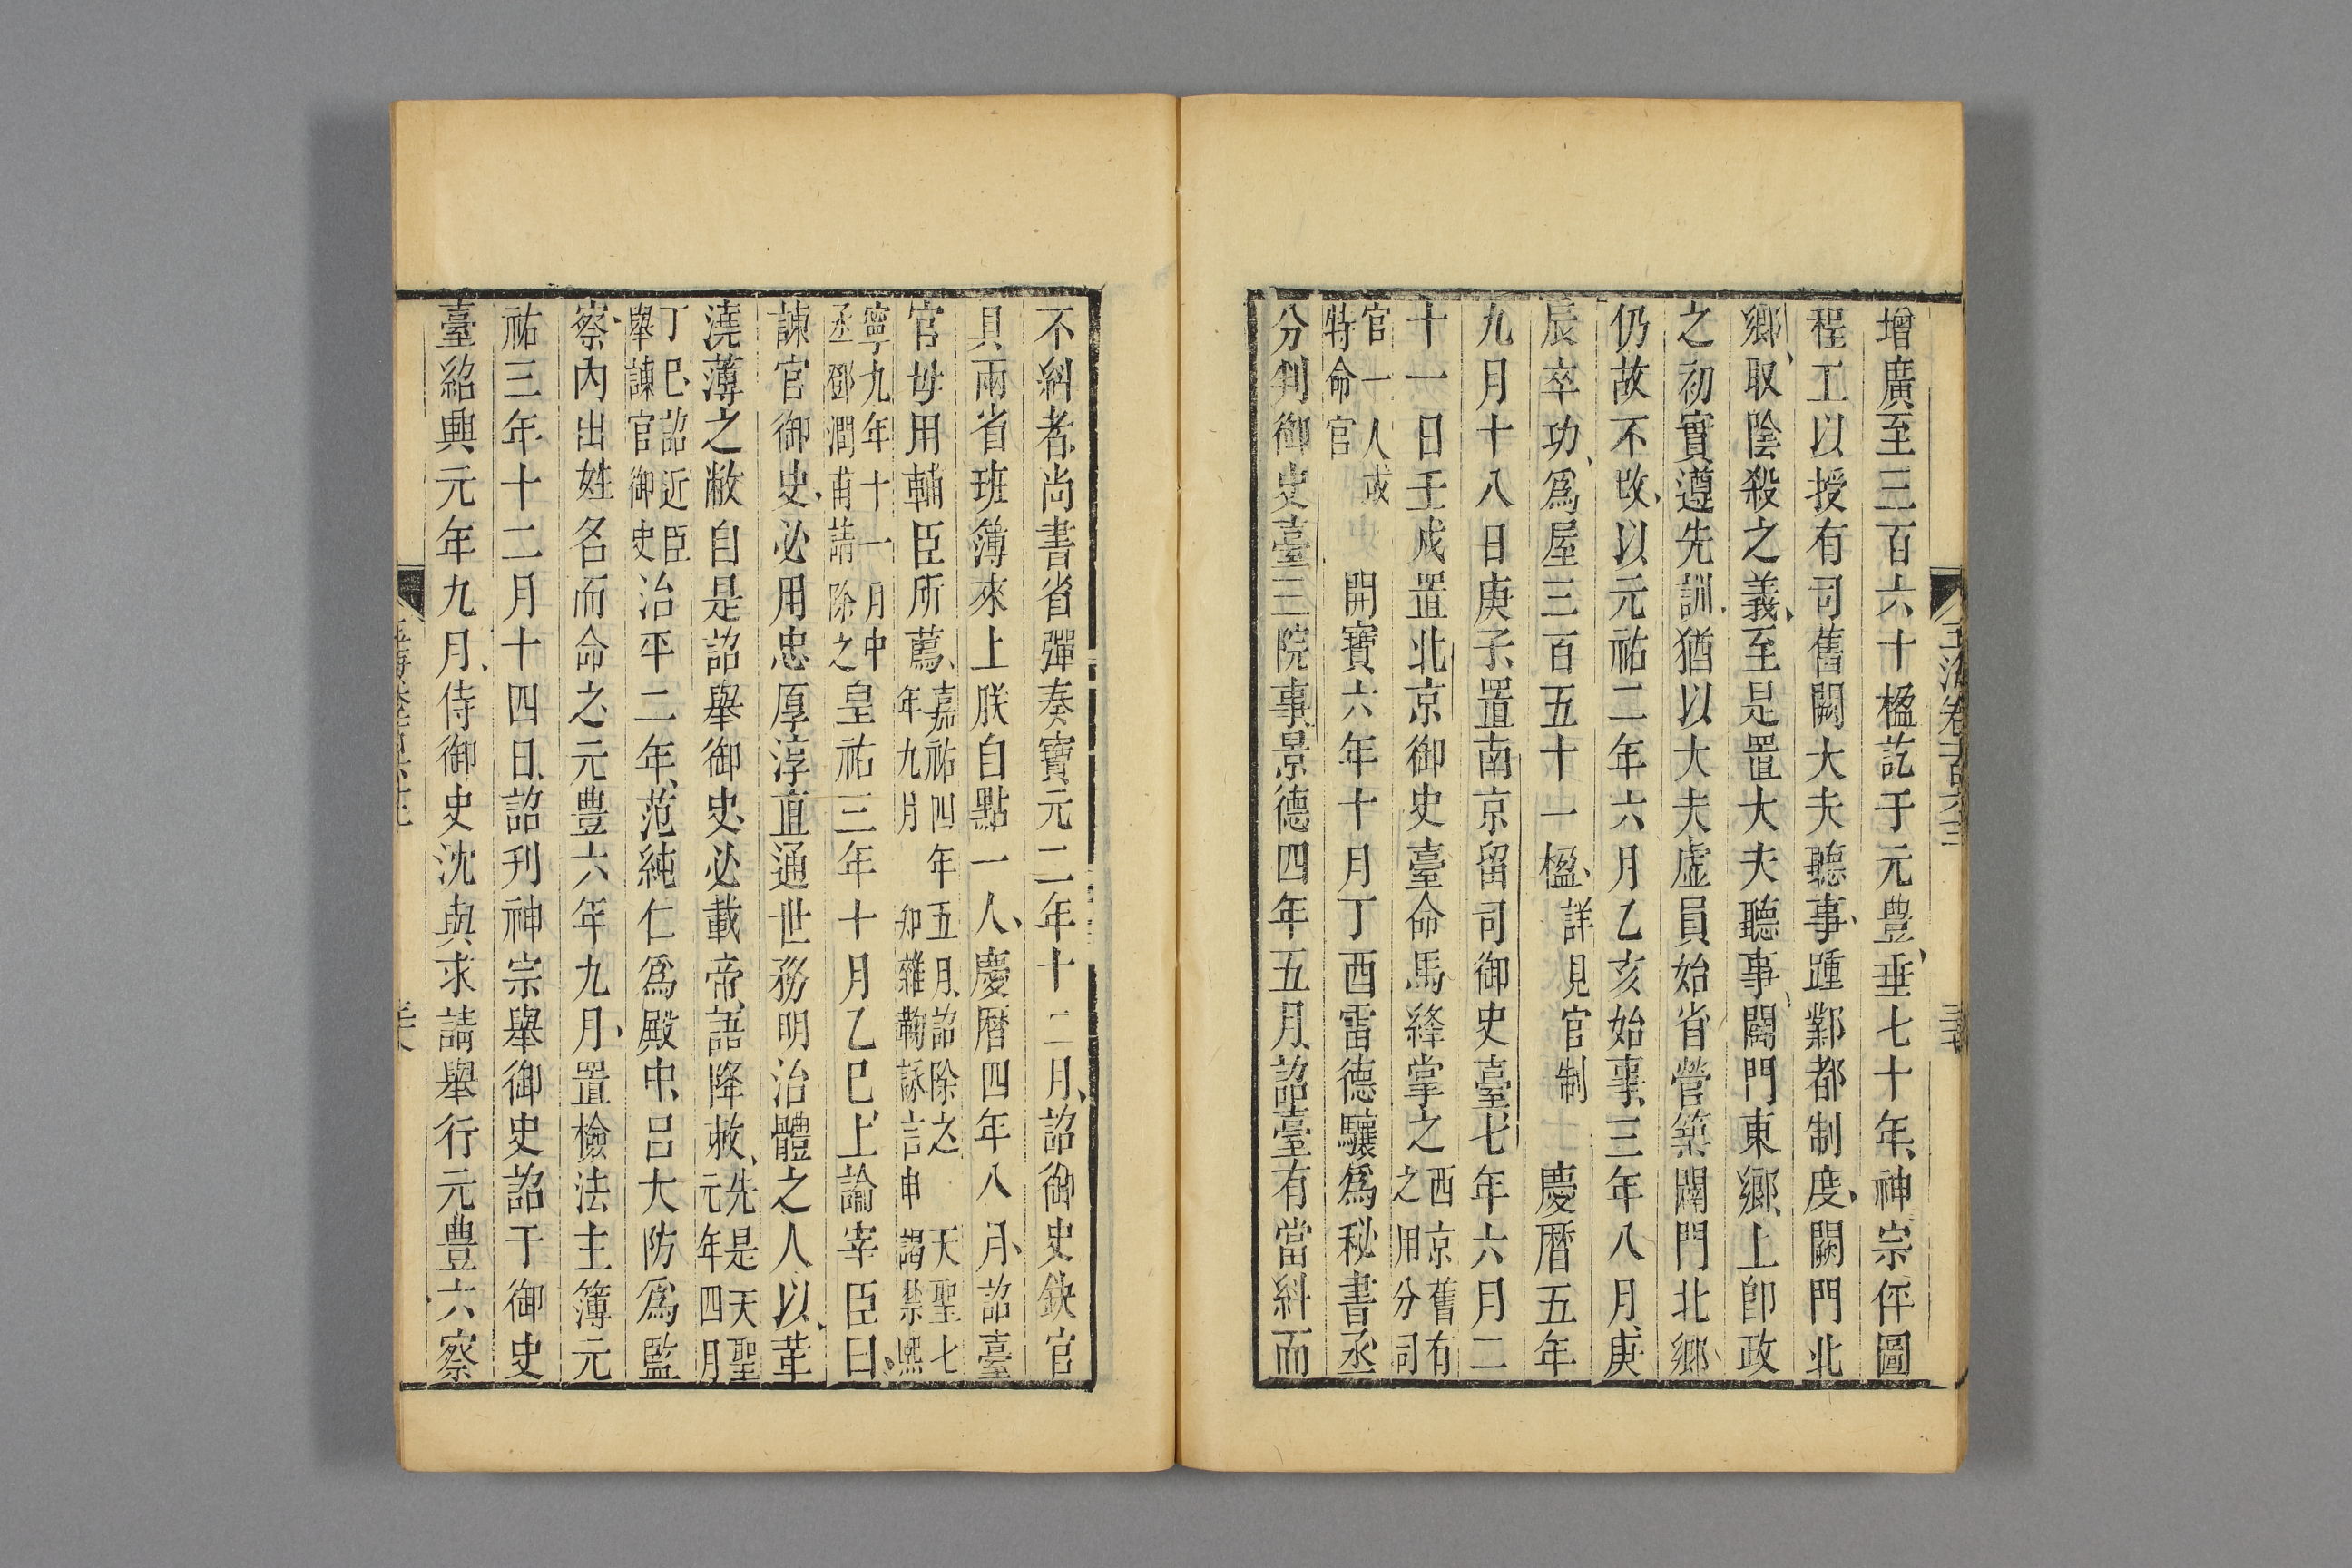 增廣至三百六十楹訖于元豊垂七十年神宗伻圖
程工以授有司舊闕大夫聽事踵鄴都制度闕門北
鄉取陰殺之義至是置大夫聽事闢門東鄉上卽政
之初實遵先訓猶以大夫虛員始省營築闢門北鄉
仍故不改以元祐二年六月乙亥始事三年八月庚
辰卒功爲屋三百五十一楹詳見官制 慶曆五年
九月十八日庚子置南京留司御史臺七年六月二
十一日壬戌置北京御史臺命馬絳掌之西京舊有
之用分司
官一人或
特命官 開寶六年十月丁酉雷德驤爲秘書丞
分判御史臺三院事景德四年五月詔臺有當糾而
不糾者尚書省彈奏寶元二年十二月詔御史缺官
具兩省班簿來上朕自點一人慶曆四年八月詔臺
官毋用輔臣所薦嘉祐四年五月詔除之 天聖七
年九月 卻雜鞫詠言申謁禁熈
寧九年十一月中
丞鄧潤甫請除之皇祐三年十月乙巳上諭宰臣曰
諫官御史必用忠厚淳直通世務明治體之人以革
澆薄之敝自是詔舉御史必載帝語降敕先是天聖
元年四月
丁巳詔近臣
舉諫官御史治平二年范純仁爲殿中呂大防爲監
察內出姓名而命之元豊六年九月置檢法主簿元
祐三年十二月十四日詔刋神宗舉御史詔于御史
臺紹興元年九月侍御史沈與求請舉行元豊六察